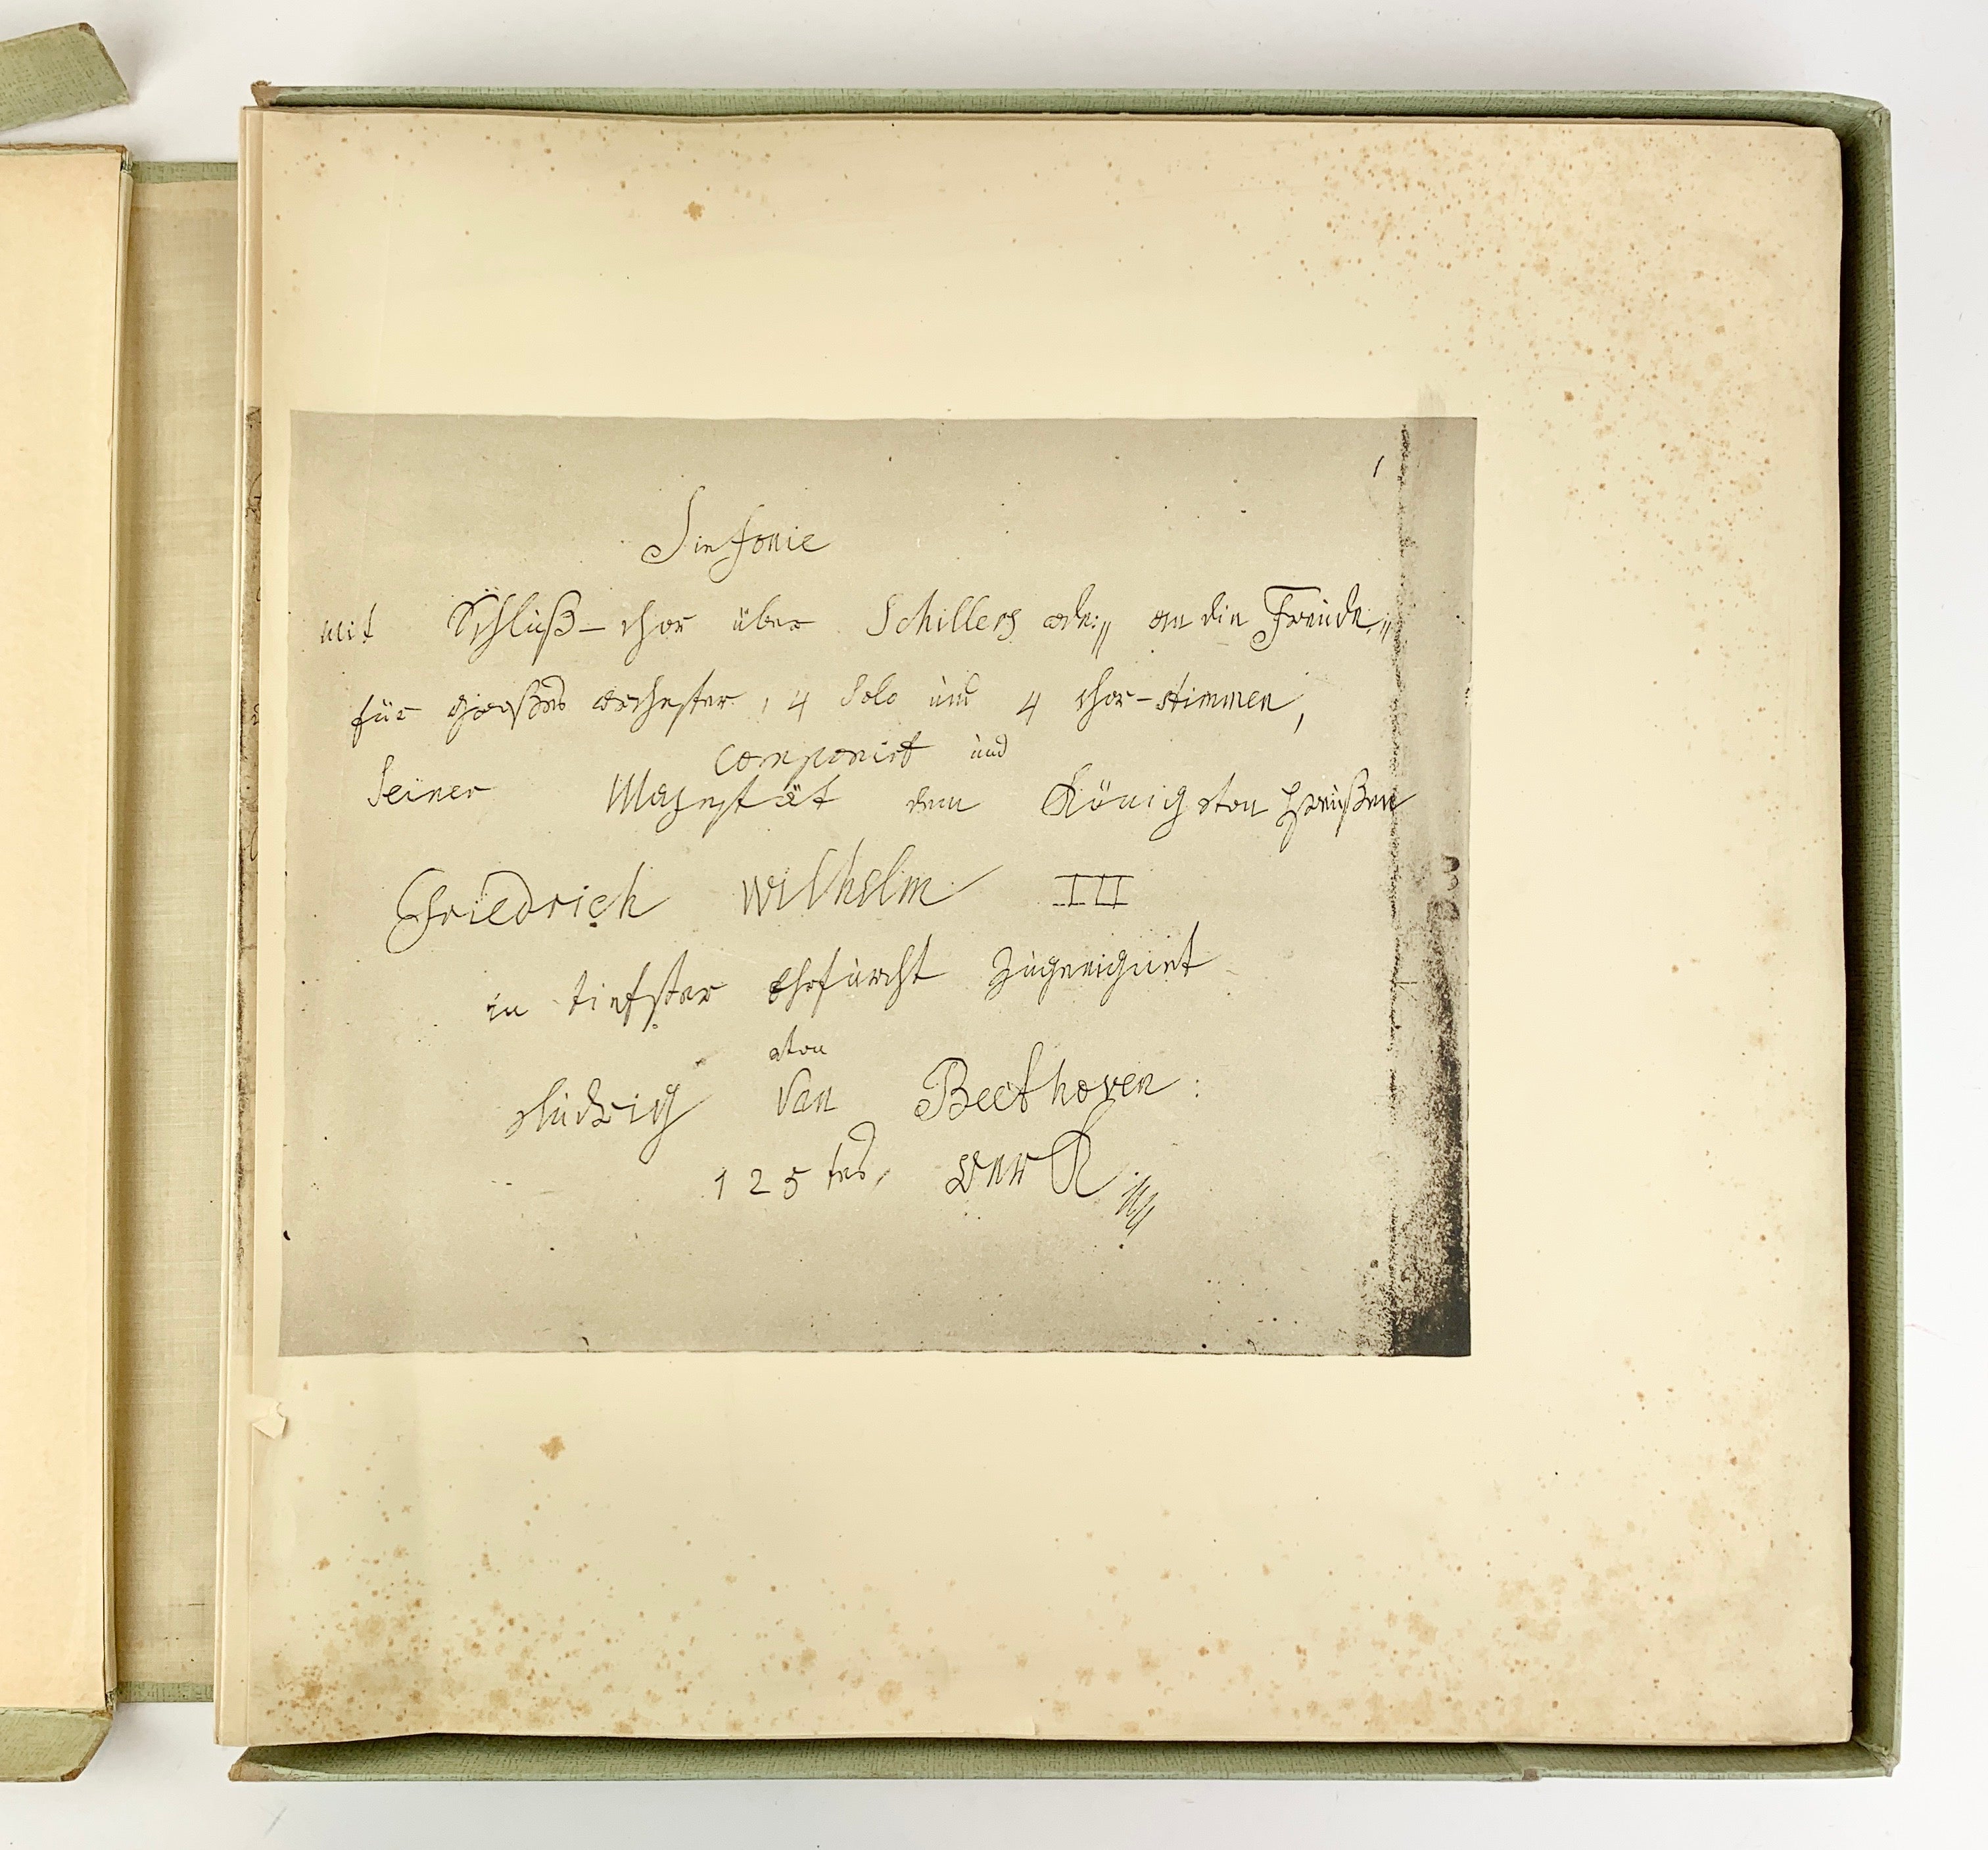 Sinfonie
mit Schluß-chor über Schillers ode: „ an die Freude „
für großes orchester, 4 Solo und 4 chor-stimmen,
componirt und
Seiner Majestät dem König von Preußen
Friedrich Wilhelm III
in tiefster Ehrfurcht zugeeignet
von
Ludwig van Beethoven:
125tes, Werk